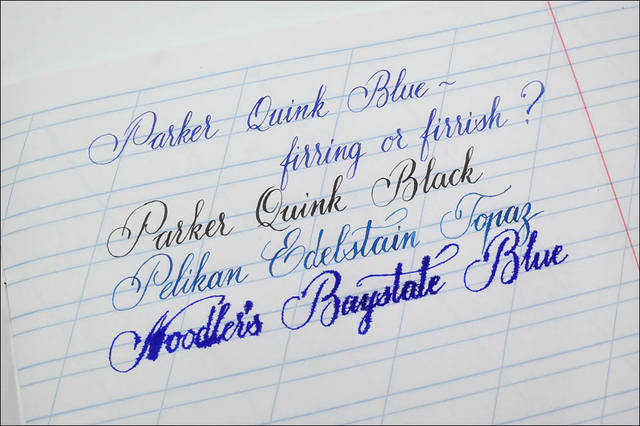 Parker Quink Blue ~
firring or firrish ?
Parker Quink Black
Pelikan Edelstain Topaz
Noodler's Baystate Blue